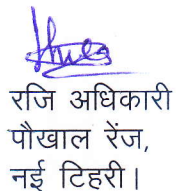 रजि अधिकारी
पौखाल रेंज,
नई टिहरी।